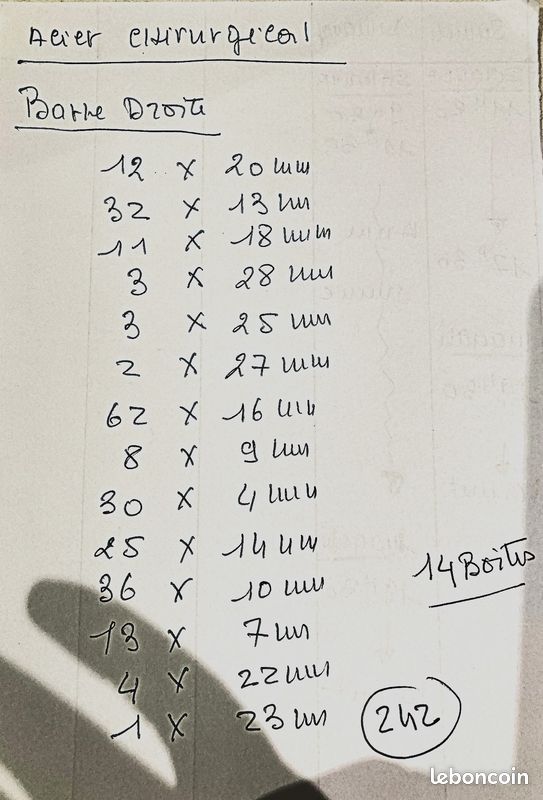 Acier Chirurgical
Barre Droite
12 x 20 mm
32 x 13 mm
11 x 18 mm
3 x 28 mm
3 x 25 mm
2 x 27 mm
62 x 16 mm
8 x 9 mm
30 x 4 mm
25 x 14 mm
36 x 10 mm
14 Boites
13 x 7 mm
4 x 22 mm
1 x 23 mm
242
leboncoin